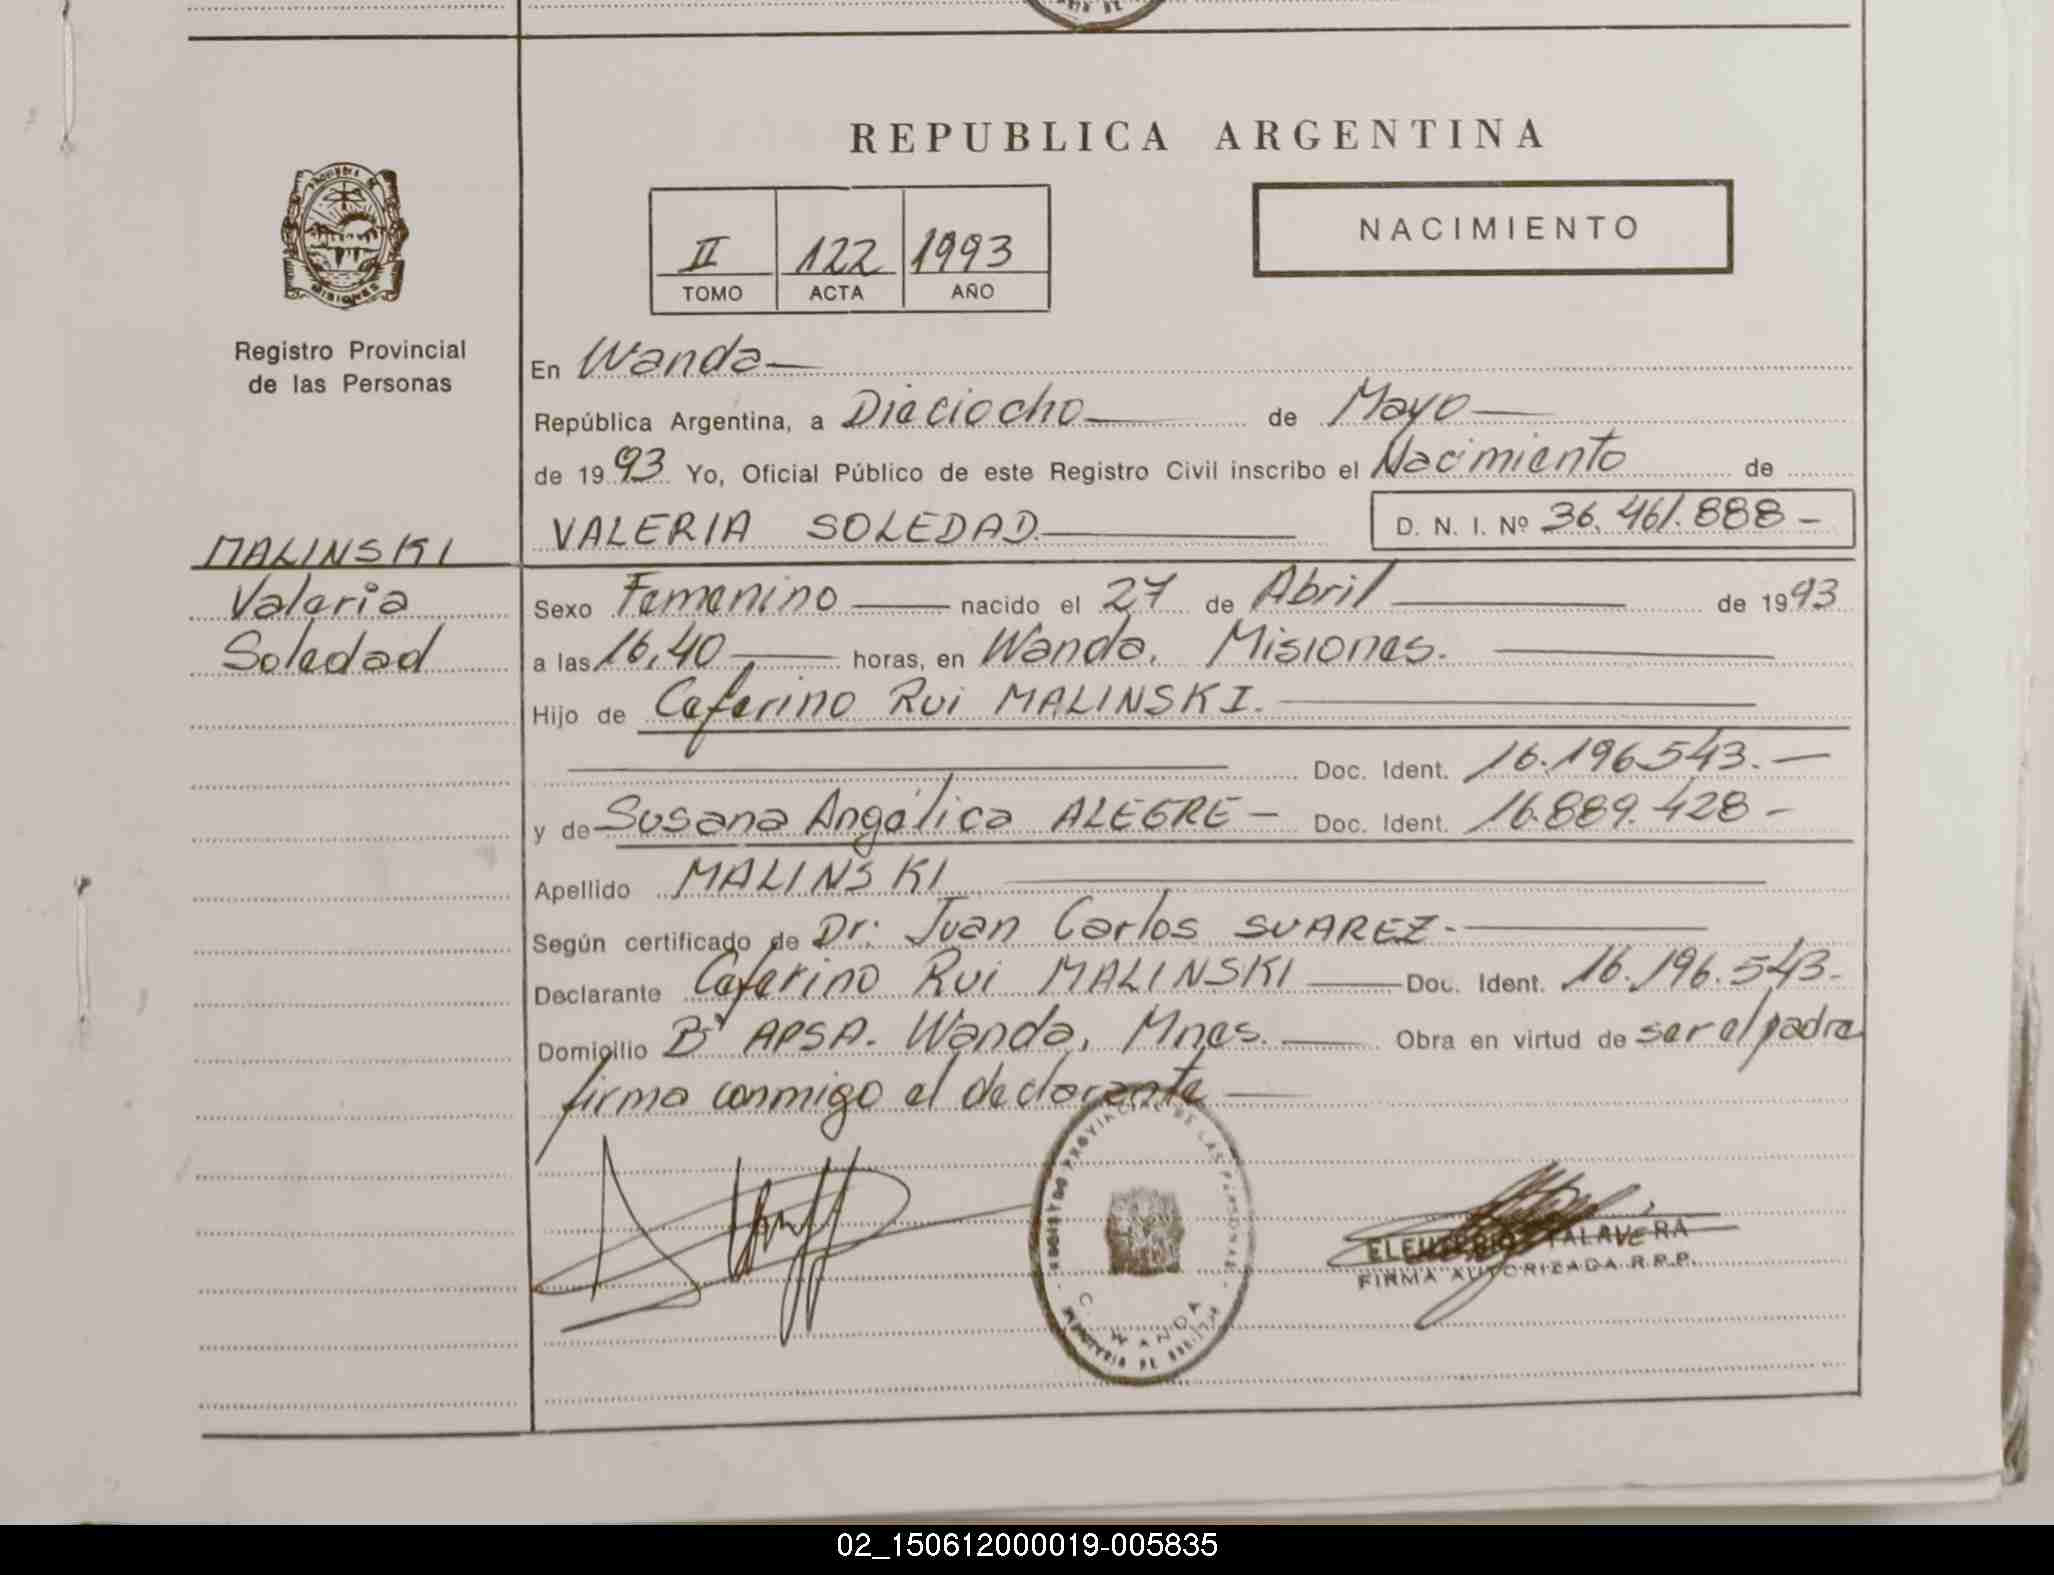 REPUBLICA ARGENTINA
PROVINCIA DE
MISIONES
Registro Provincial
de las Personas
II 122 1993
TOMO ACTA AÑO
NACIMIENTO
En Wanda
República Argentina, a Dieciocho de Mayo
de 1993 Yo, Oficial Público de este Registro Civil inscribo el Nacimiento de
VALERIA SOLEDAD D. N. I. Nº 36.461.888-
MALINSKI
Valeria
Soledad
Sexo Femenino nacido el 27 de Abril de 1993
a las 16,40 horas, en Wanda, Misiones.
Hijo de Ceferino Rui MALINSKI.
Doc. Ident. 16.196.543.-
y de Susana Angélica ALEGRE - Doc. Ident. 16.889.428-
Apellido MALINSKI
Según certificado de Dr. Juan Carlos SUAREZ.
Declarante Ceferino Rui MALINSKI Doc. Ident. 16.196.543-
Domicilio Bº APSA. Wanda, Mnes. Obra en virtud de ser el padre
firma conmigo el declarante
REGISTRO PROVINCIAL DE LAS PERSONAS
WANDA
ELEUTERIO TALAVERA
FIRMA AUTORIZADA R.P.P.
02_150612000019-005835